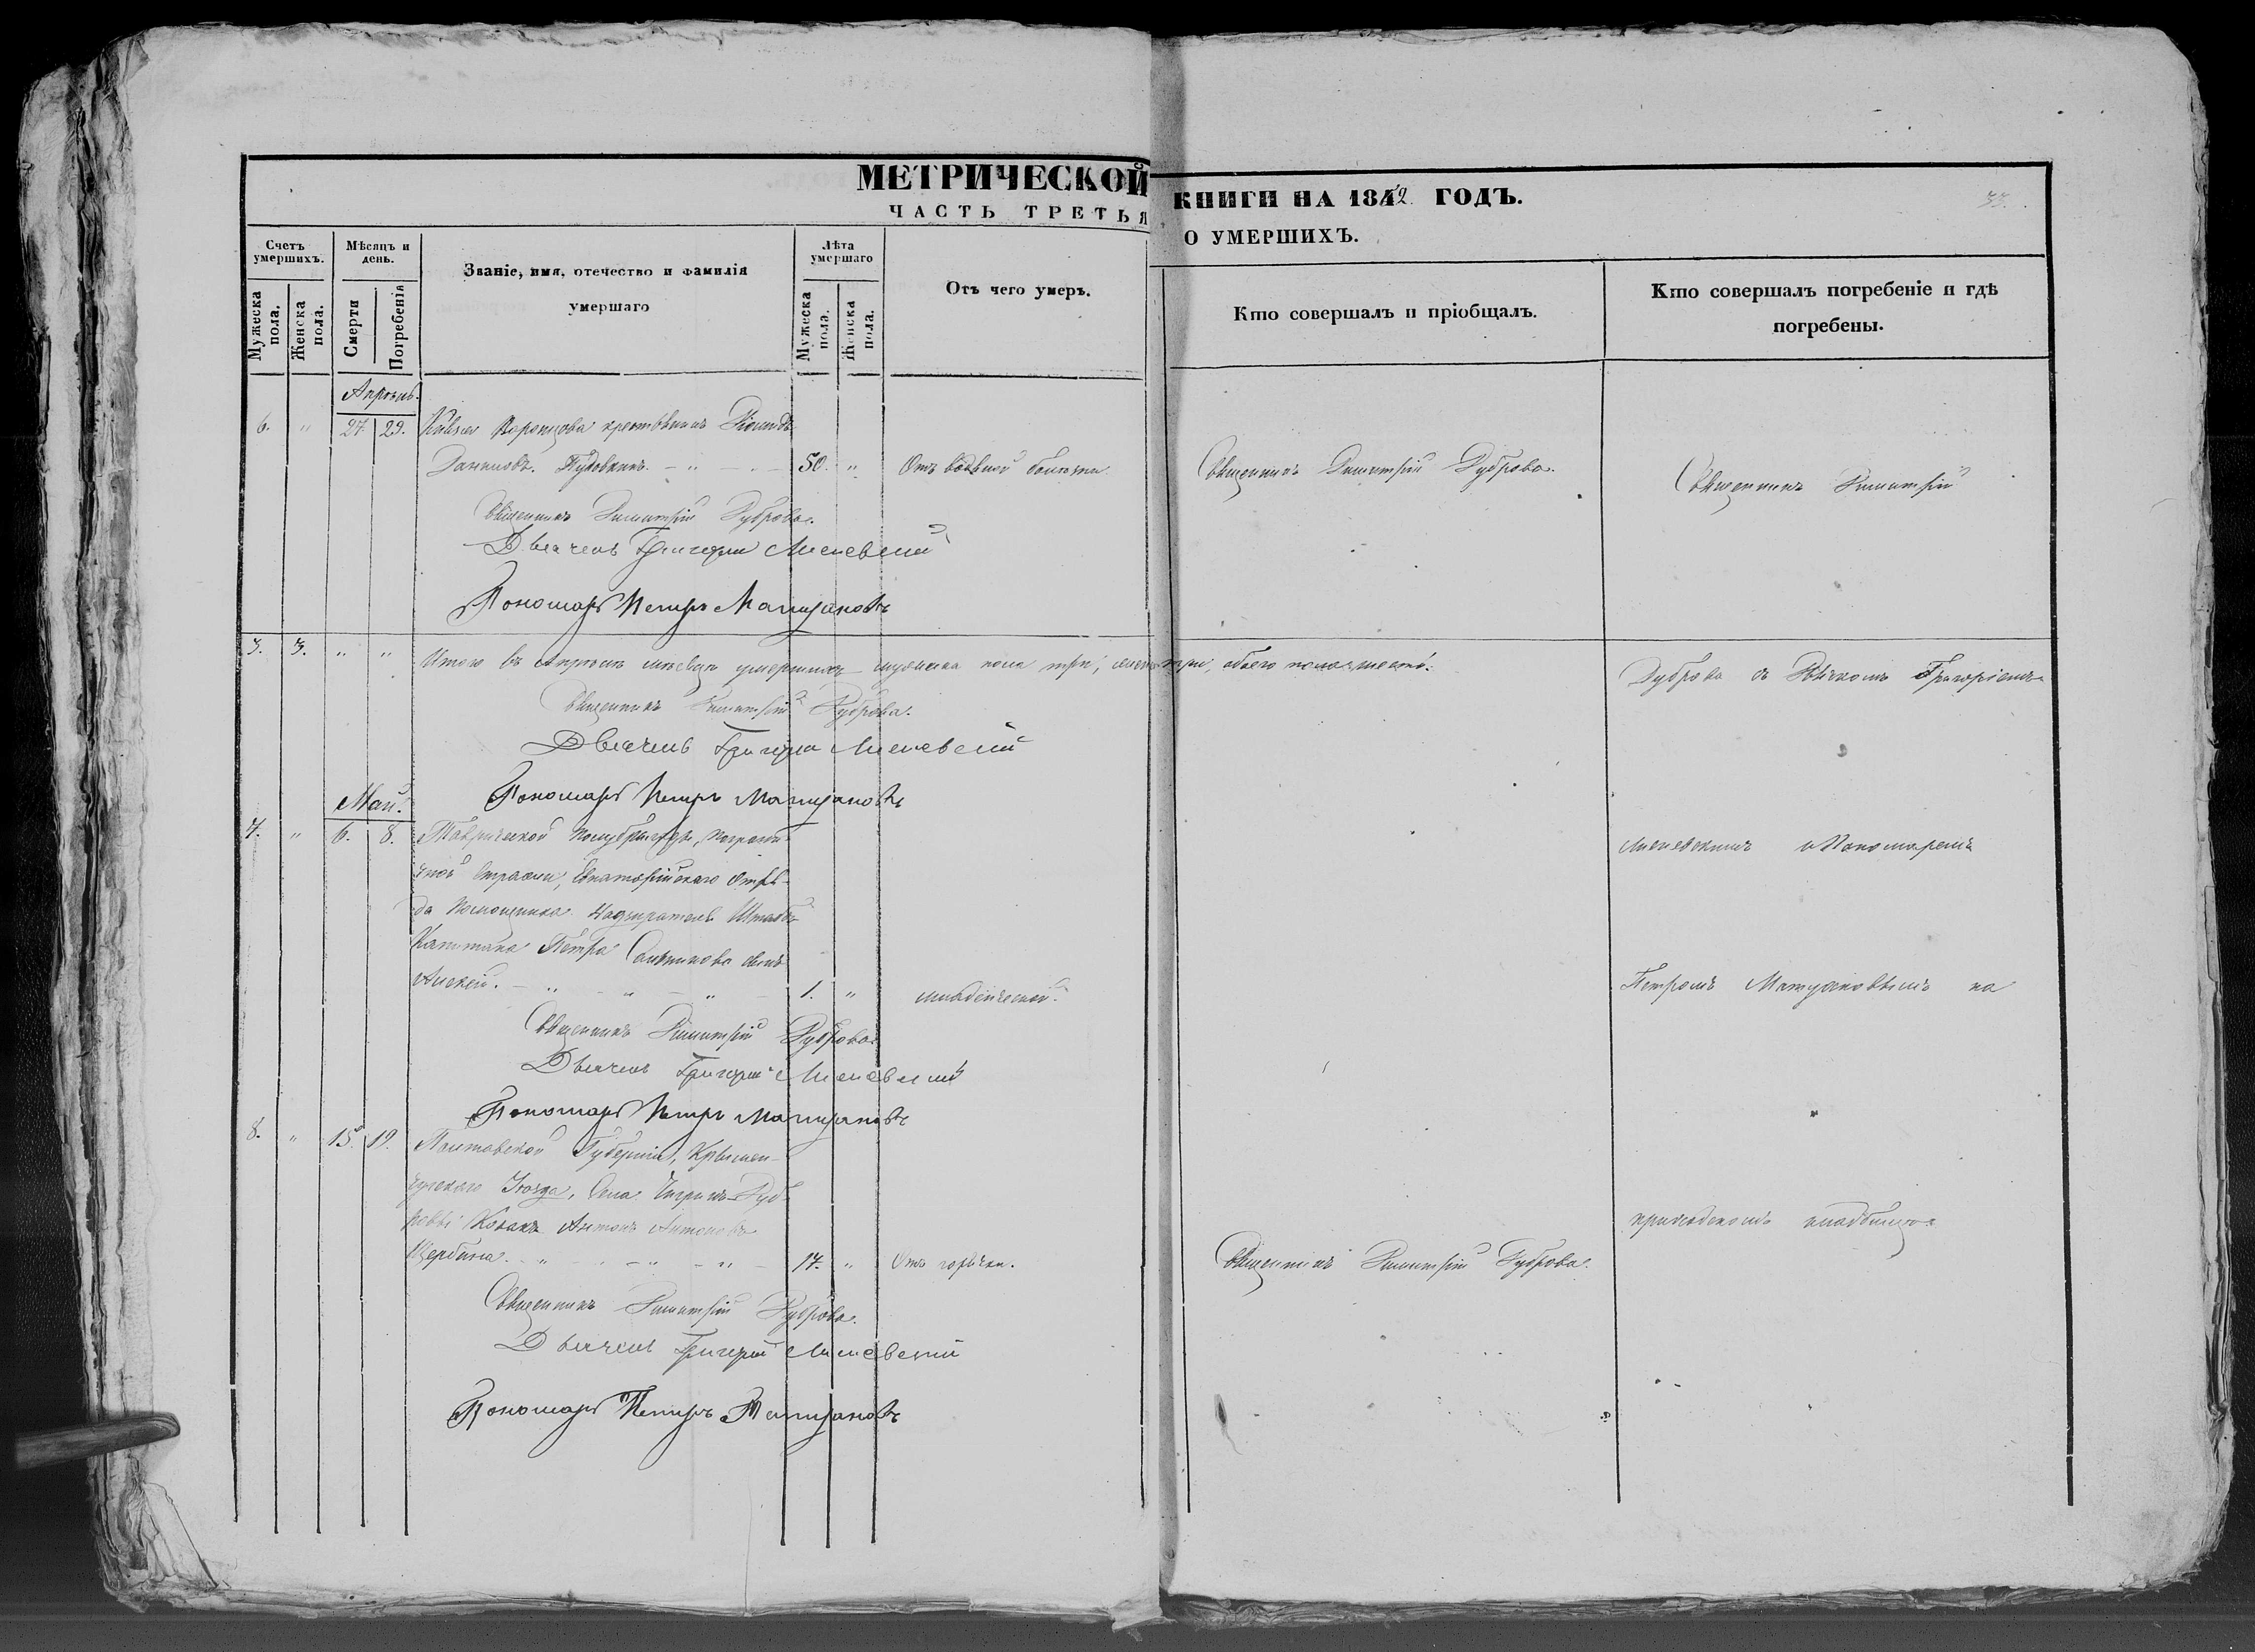 МЕТРИЧЕСКОЙ КНИГИ НА 1842 ГОДЪ.
33.
ЧАСТЬ ТРЕТЬЯ О УМЕРШИХЪ.
Счетъ умершихъ.
Мужеска пола.
Женска пола.
Мѣсяцъ и день.
Смерти
Погребенія
Званіе, имя, отечество и фамилія умершаго
Лѣта умершаго
Мужеска пола.
Женска пола.
Отъ чего умеръ.
Кто совершалъ и пріобщалъ.
Кто совершалъ погребеніе и гдѣ погребены.
Апрѣль.
6. " 27 29. Князя Воронцова крестьянинъ
Даниловъ. Пудовкинъ. - " - 50. " Отъ водяной болезни. Священникъ Димитрій Дуброва. Священникъ Димитрій
Священникъ Димитрій Дуброва.
Дьячекъ Григорий
Пономарь Петръ
3. 3. " " Итого въ Апрѣлѣ мѣсяцѣ умершихъ мужеска пола три, женска три, обоего пола шесть.
Дуброва съ Дьячкомъ Григоріемъ
Священникъ Димитрій Дуброва.
Дьячекъ Григорий
Пономарь Петръ
Май.
7. " 6. 8. Таврической Полубригады, Погранич-
и Пономаремъ
ной Стражи, Евпаторійскаго Отря-
да Помощника Надзирателя Штабсъ
Капитана Петра сынъ
Алексѣй. - " - " - " - 1. " младенческой.
Петромъ на
Священникъ Димитрій Дуброва.
Дьячекъ Григорий
Пономарь Петръ
8. " 15. 19. Полтавской Губерніи, Кременчу-
гскаго Уѣзда, Села Чигринъ-Дуб-
ровы Козакъ Антонъ Антоновъ
приходскомъ кладбищѣ.
Щербина. - " - " - " - 17. " Отъ горячки. Священникъ Димитрій Дуброва.
Священникъ Димитрій Дуброва.
Дьячекъ Григорий
Пономарь Петръ